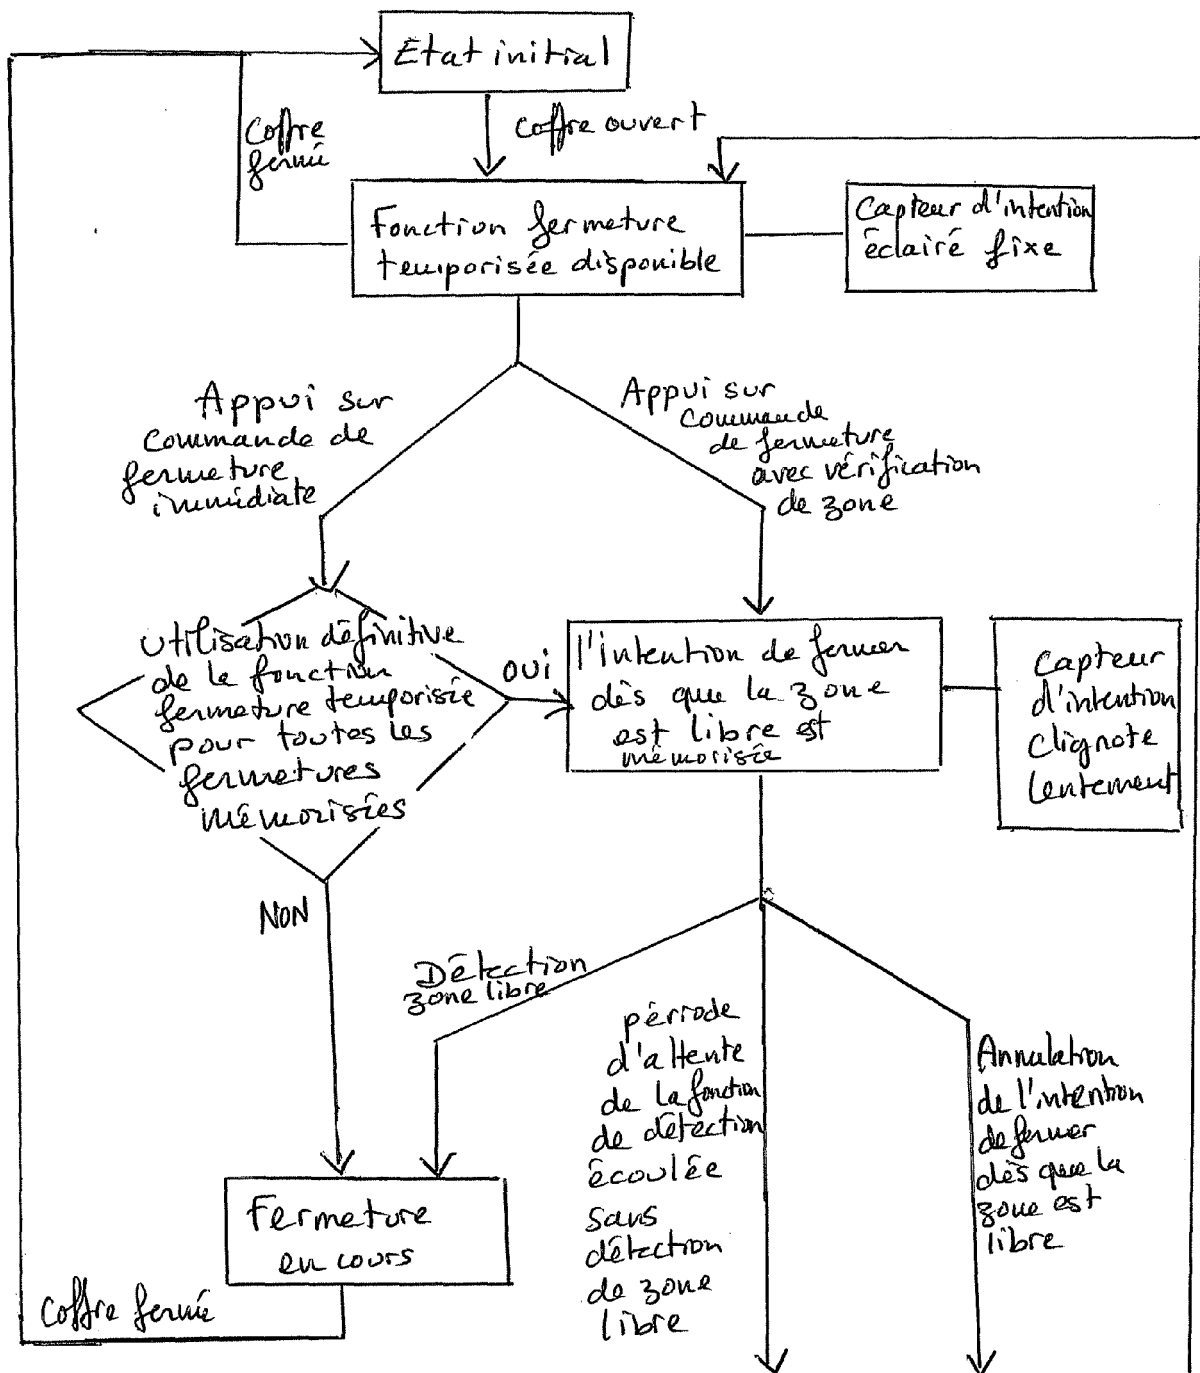 Etat initial
Coffre
fermé
Coffre ouvert
Fonction fermeture
temporisée disponible
Capteur d'intention
éclairé fixe
Appui sur
Commande de
fermeture
immédiate
Appui sur
Commande
de fermeture
avec vérification
de zone
Utilisation définitive
de la fonction
fermeture temporisée
pour toutes les
fermetures
mémorisées
OUI
l'intention de fermer
dès que la zone
est libre est
mémorisée
Capteur
d'intention
clignote
lentement
NON
Détection
zone libre
période
d'attente
de la fonction
de détection
écoulée
sans
détection
de zone
libre
Annulation
de l'intention
de fermer
dès que la
zone est
libre
Fermeture
en cours
Coffre fermé